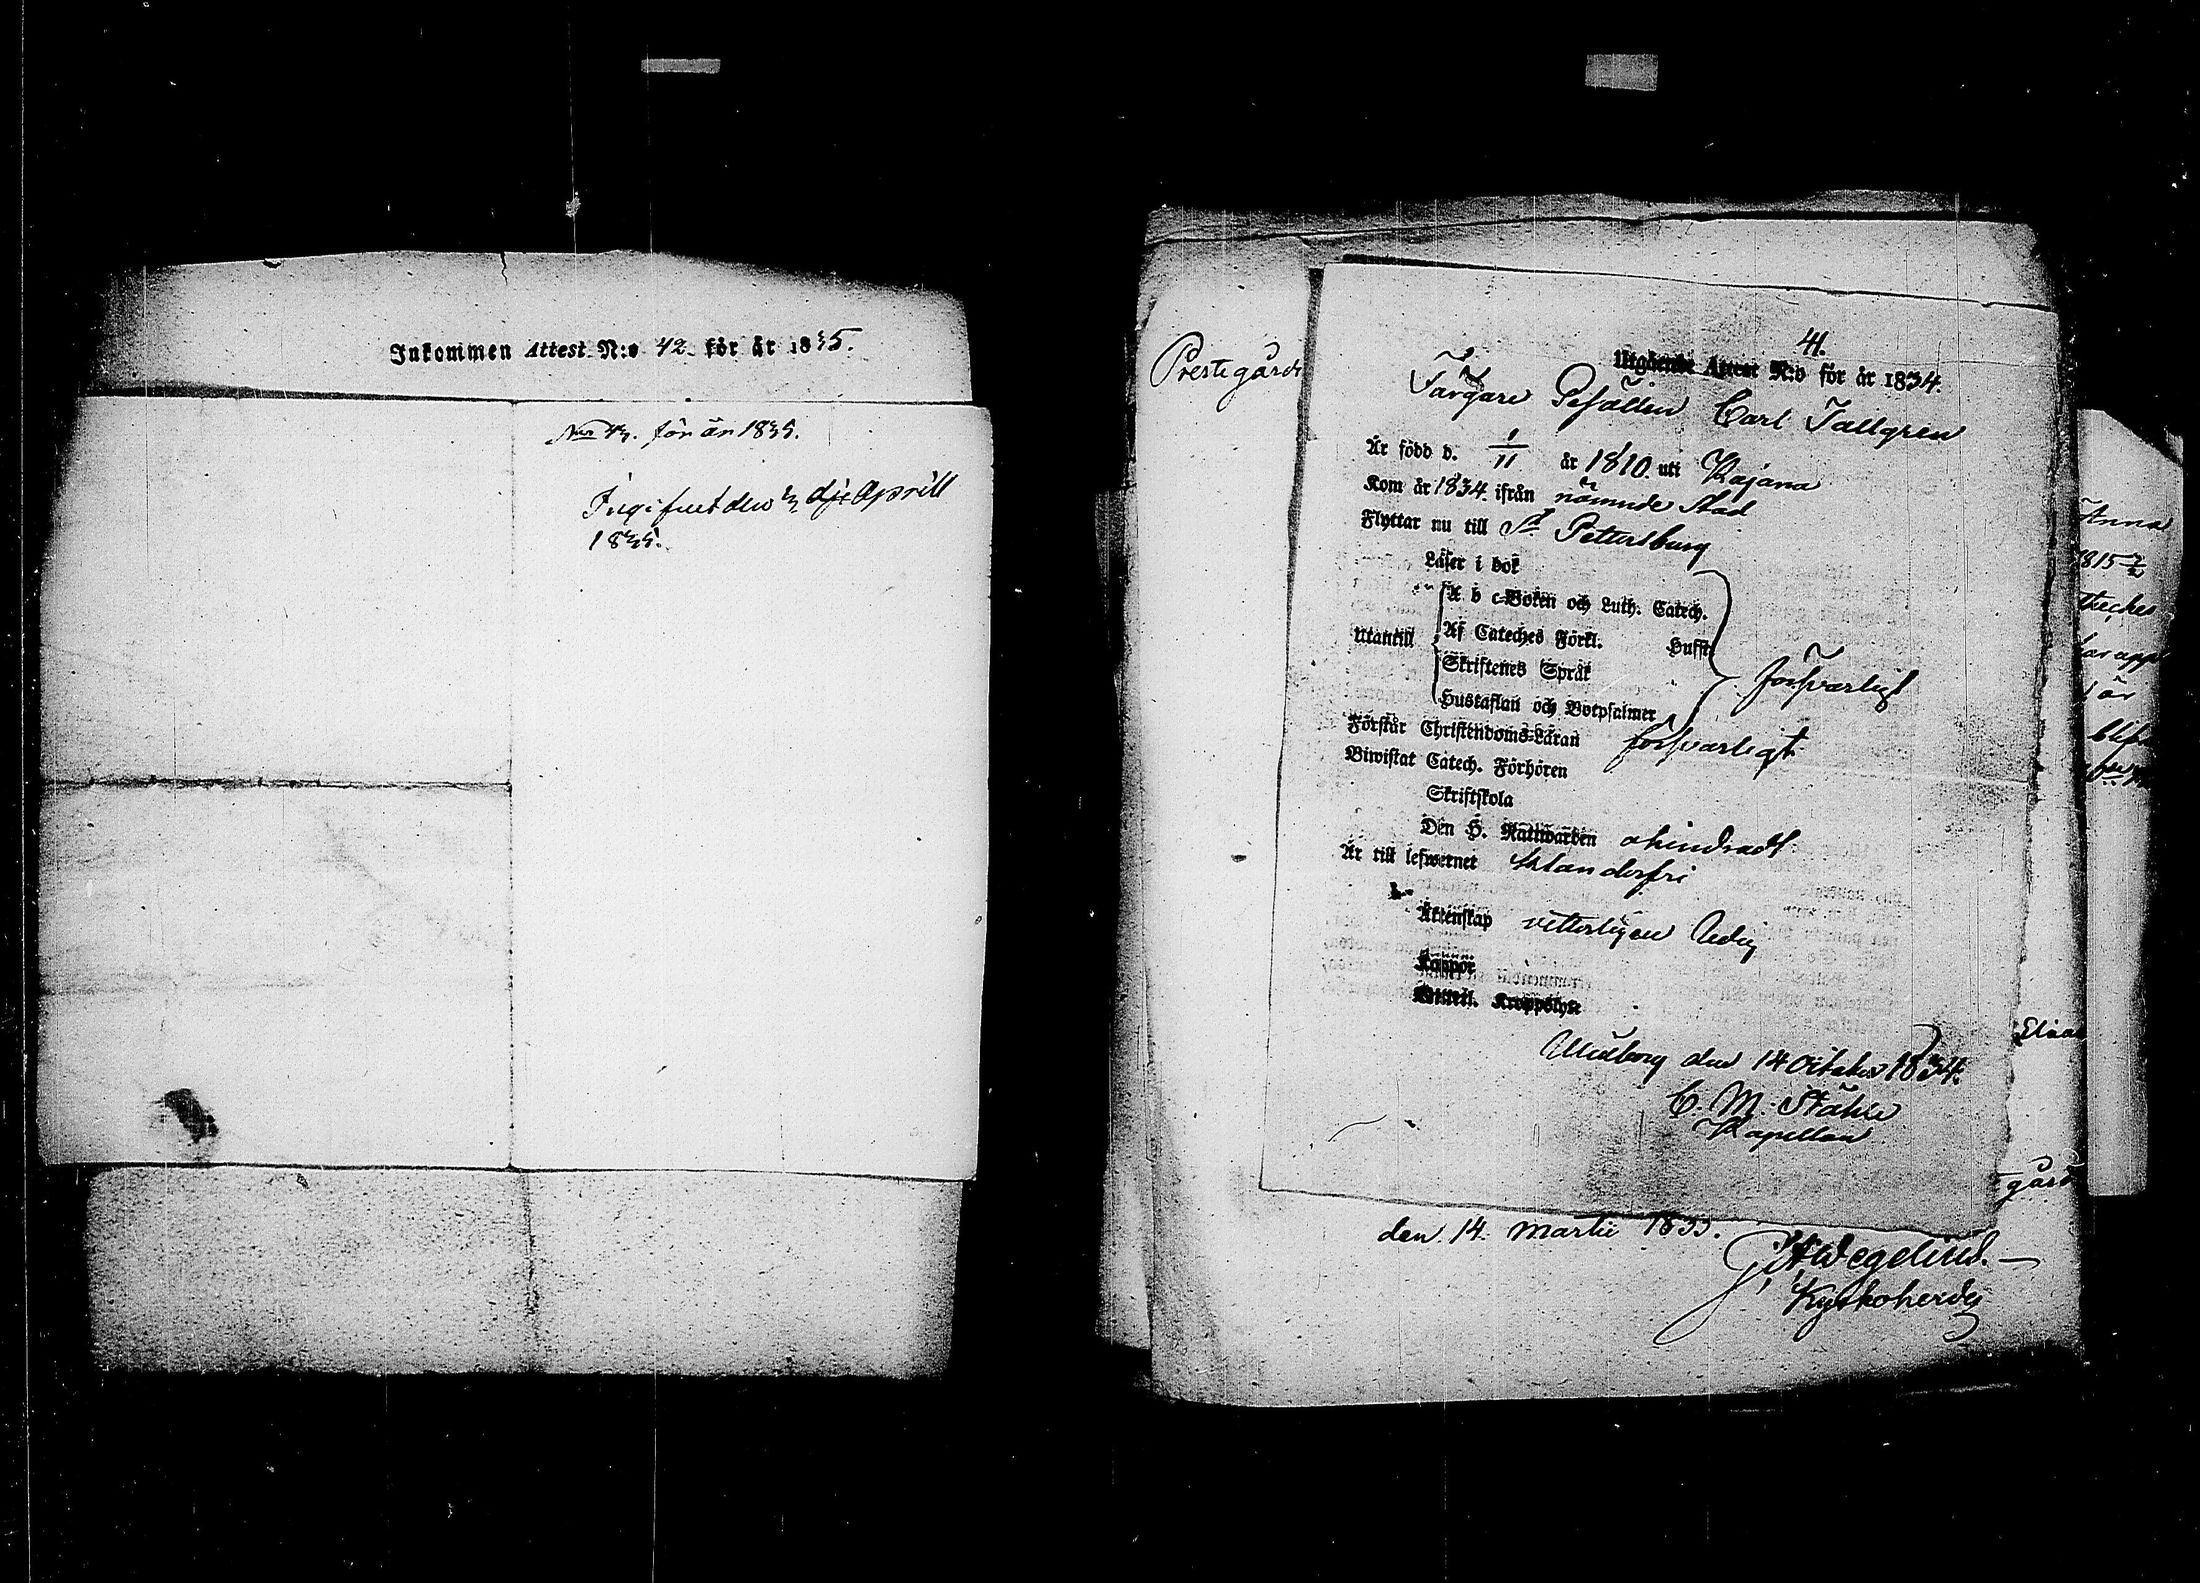 Inkommen Attest N:o 42. för år 1835.
N:o 43. för år 1835.
den 3 dje Aprill
1835.
Prestegård
41.
Utgående Attest N:o för år 1834.
Färgare Gesällen Carl Tallgren
Är född d. 1/11 år 1810. uti Kajana
Kom år 1834. ifrån nämnde Stad
Flyttar nu till St Petersburg
Läser i bok
A b c-Boken och Luth. Catech.
Utantill
Af Cateches Förkl. Husst
Skriftenes Språk
Hustaflan och Botpsalmer
försvarligt
Förstår Christendoms-Läran försvarligt
Biwistat Catech. Förhören
Skriftskola
Den H. Nattwarden ohindradt
Är till lefwernet klanderfri
Äktenskap vetterligen ledig
Koppor
Naturl. Kroppslyte
Uleåborg den 14 October 1834.
C. M. Ståhle
Kapellan
den 14. Martii 1835.
Wegelius.
Kyrkoherde
Anna
1815
theches
är
Elisa
gård